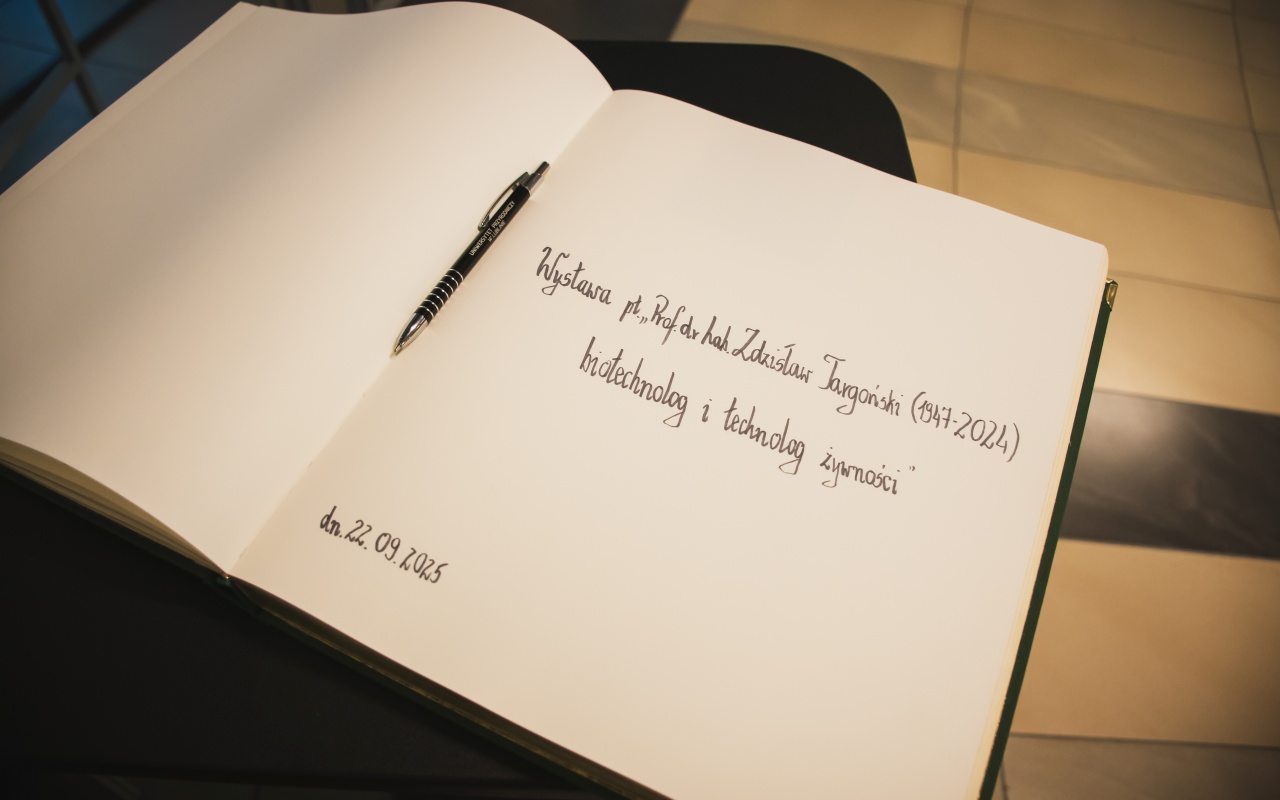 UNIWERSYTET PRZYRODNICZY
W LUBLINIE
Wystawa pt. „Prof. dr hab. Zdzisław Targoński (1947-2024)
biotechnolog i technolog żywności”
dn. 22.09.2025